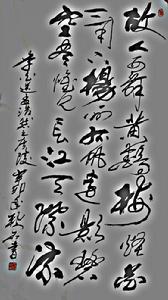 故人西辞黄鹤楼烟花
三月下扬州孤帆远影碧
空尽惟见长江天际流
李白送孟浩然之广陵